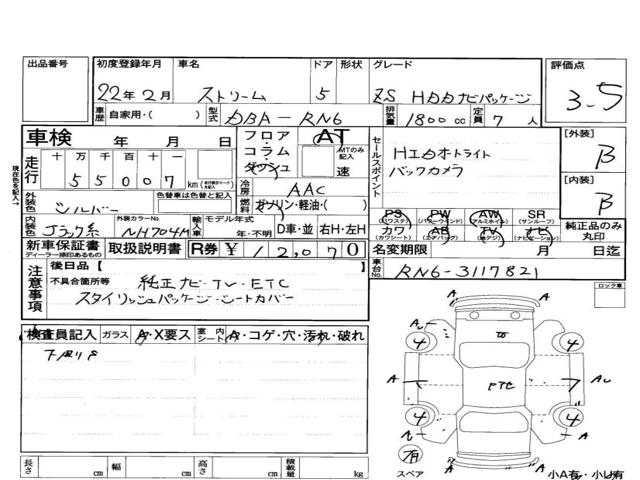 出品番号 初度登録年月 車名 ドア 形状 グレード 評価点
22年 2月 ストリーム 5 ZS HDDナビパッケージ 3-5
車歴 自家用・( ) 型式 DBA-RN6 排気量 1800cc 定員 7名
車検 年 月 日 フロア・コラム・ダッシュ AT MTのみ記入 速 セールスポイント
[外装] B
走行 十万 万 千 百 十 一 55007 km
HIDオートライト
バックカメラ
冷房 AAC
[内装] B
外装色 シルバー 色替車は色替と記入 ガソリン・軽油・( )
PS (パワステ) PW (パワーウインド) AW (アルミホイル) SR (サンルーフ)
内装色 ブラック系 外装カラーNo. NH704M 輸入車 モデル年式 年・不明 D車・並 右H・左H
カワ (カワシート) AB (エアバッグ) TV (地デジ) ナビ (ナビゲーション) 純正品のみ丸印
新車保証書 ディーラー捺印あるもの 取扱説明書 R券 ¥ 12,070
名変期限 月 日迄
車台No. RN6-3117821
注意事項 後日品【 】
不具合箇所等 純正ナビ・TV・ETC
スタイリッシュパッケージ・シートカバー
ロック車
検査員記入 ガラス A・X要ス 室内シート A・コゲ・穴・汚れ・破れ
下廻りS
4 4
A ETC A
4 4
A
有
スペア
長さ cm 幅 cm 高さ cm 積載量 kg
小A有・小U有
現在色を記入→